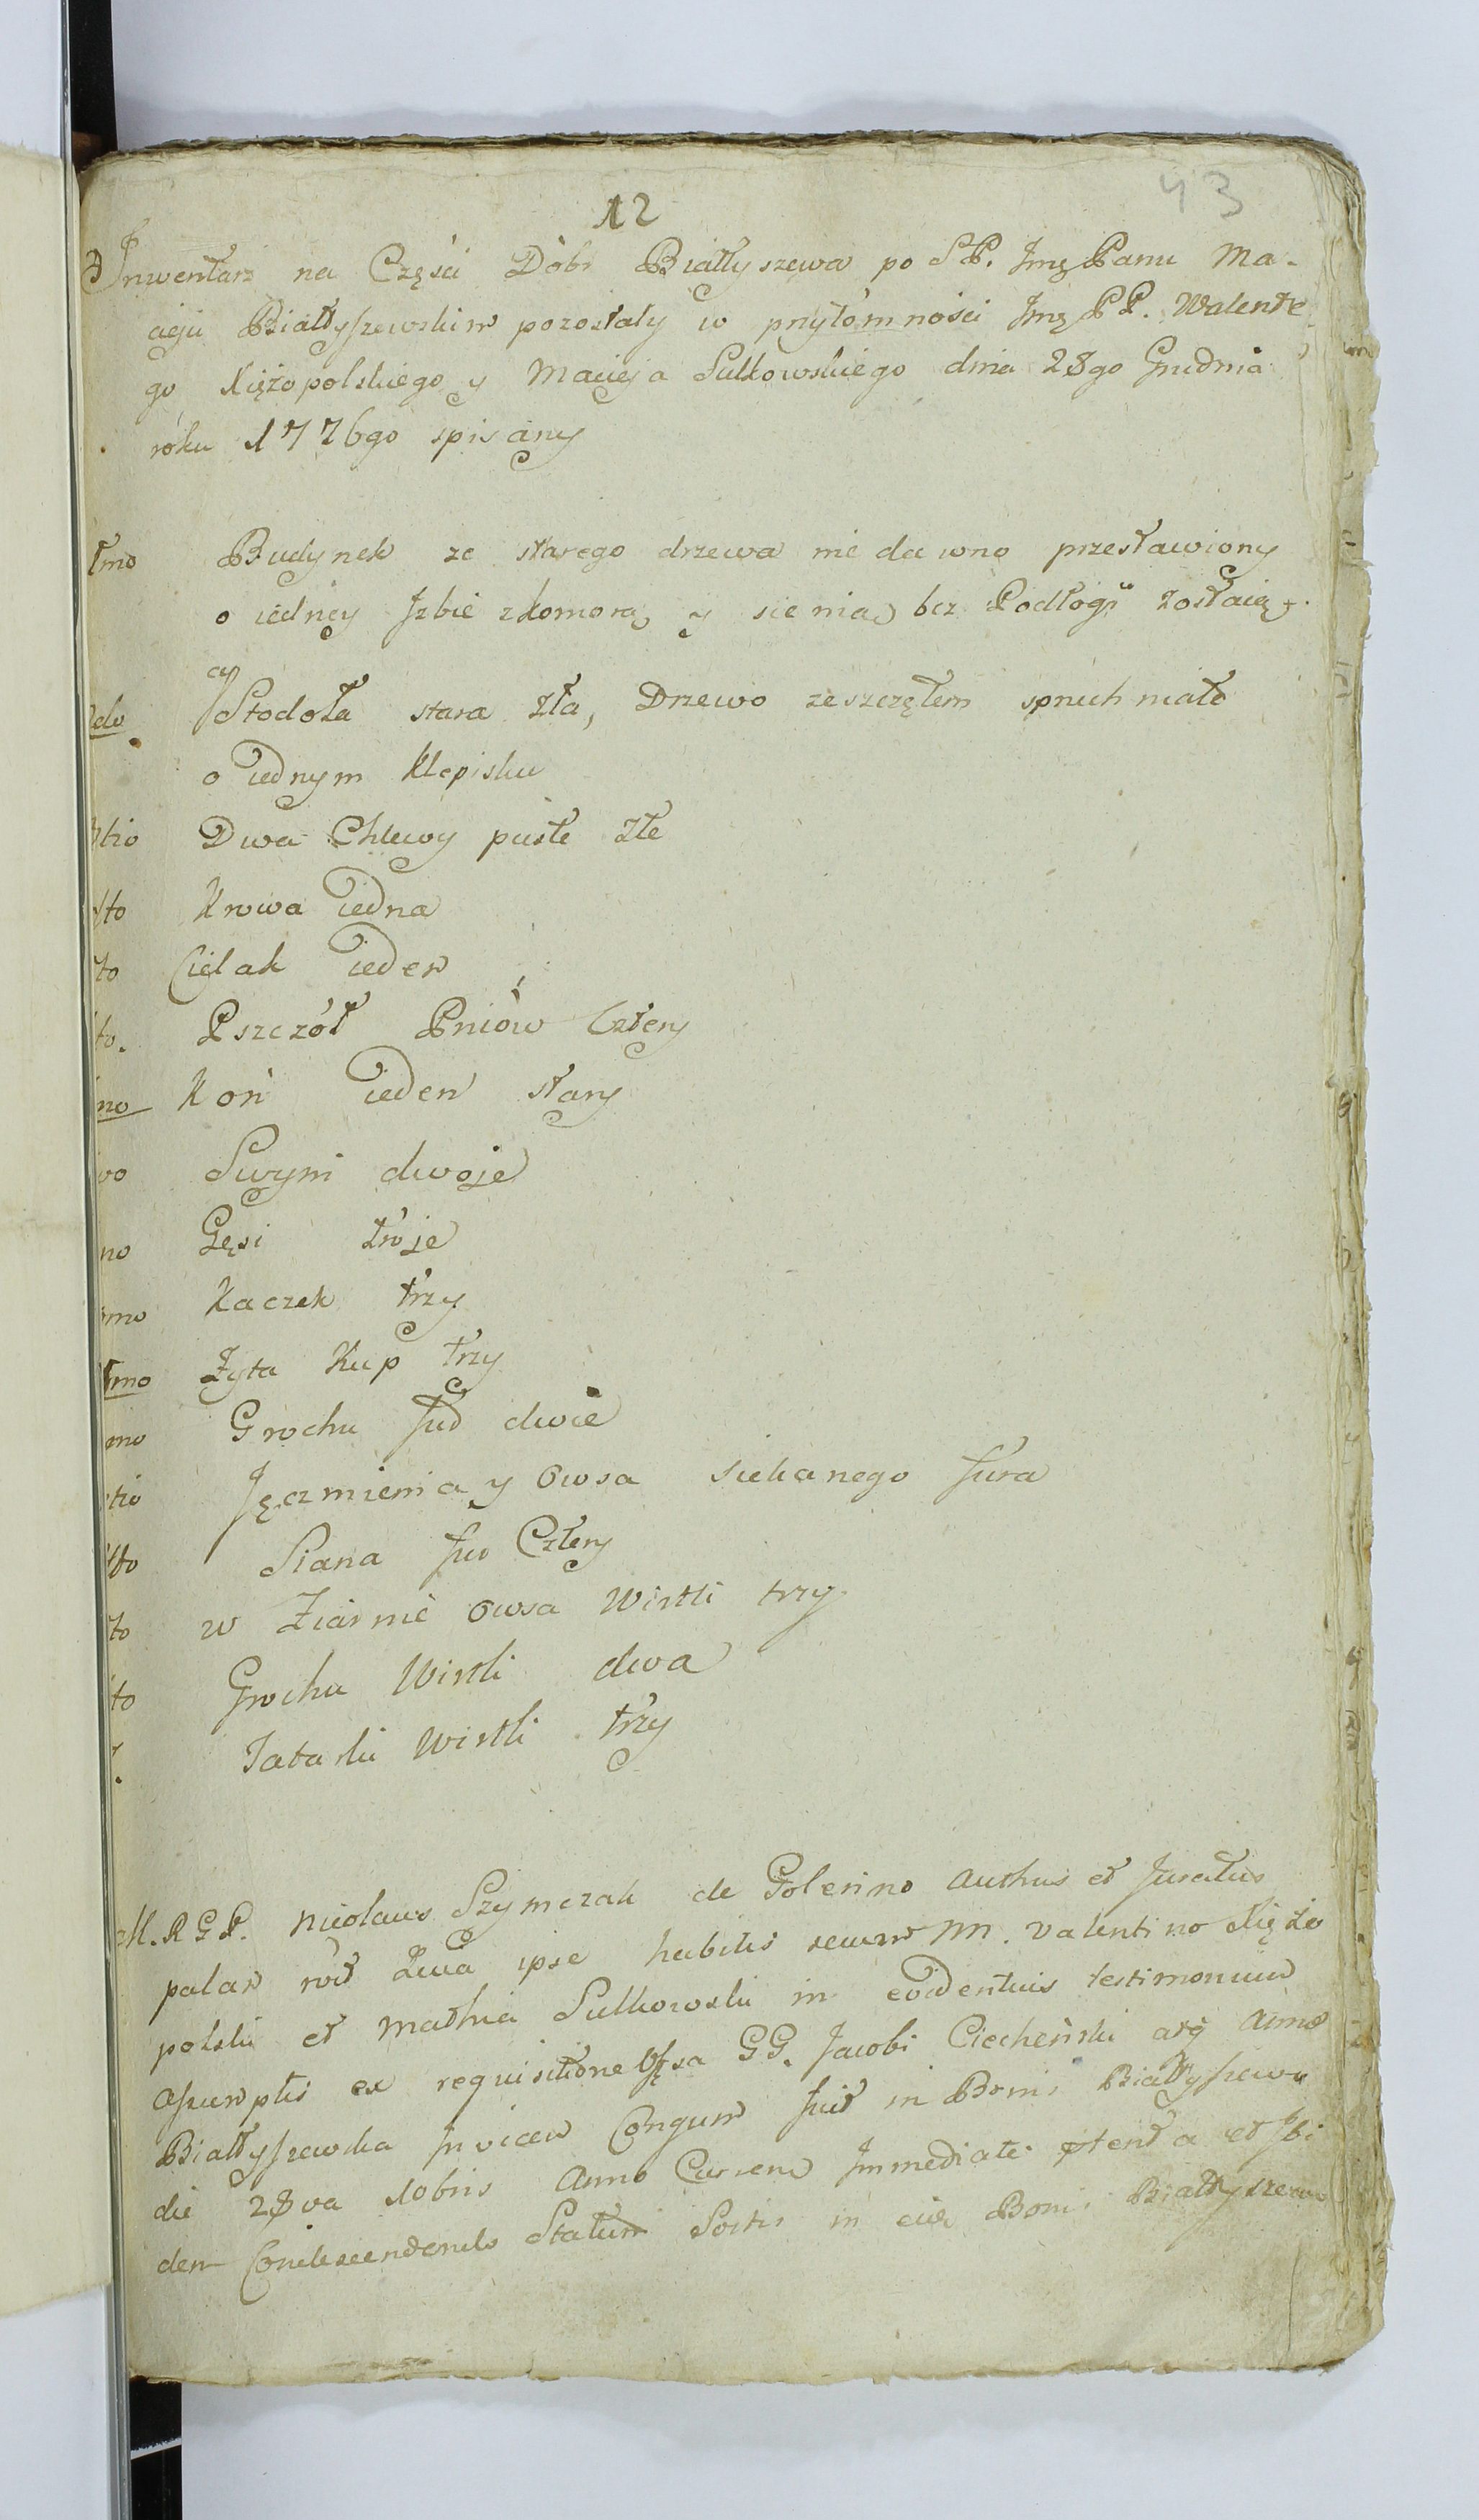 43
12
Inwentarz na Części Dóbr Białłyszewa po SP. Jmę Panu Ma-
cieju Białłyszewskim pozostały w przytomności Jmę PP. Walente
go Xiężopolskiego y Macieja Sułkowskiego dnia 28go Grudnia
róku 1776go spisany
1mo Budynek ze starego drzewa nie dawno przestawiony
o iedney Izbie z komorą y sienią bez Podłogi zostaią-
cy
2do Stodoła stara zła, Drzewo ze szczętem spruchniało
o iednym klepisku
3tio Dwa Chlewy puste złe
4to Krowa iedna
to Cielak ieden
to. Pszczół Pniów Cztery
mo Koń ieden stary
vo Swyni dwoje
no Gęsi troje
mo Kaczek trzy
1mo Żyta Kup trzy
mo Grochu fud dwie
tio Jęczmienia y Owsa siekanego fura
to Siana fur Cztery
to w Ziarnie Owsa Wirtli trzy
to Grochu Wirtli dwa
Tatarki Wirtli trzy
M. R G P. Nicolaus Szymczak de Golerino Authus et Juratus
palam ipse habitis secum M. Valentino Xiężo
polski et Mathia Sulkowski in evidentius testimonium
assumptis ex requisitione GG. Jacobi Ciecheński atq Annæ
Białłyszewska Invicem Congum fuit in Bonis Białłyszewo
die 28va Xobris Anno Curren Immediate et Ibi
dem Condescendendo Statum Sortis in eisd Bonis Białłyszewo